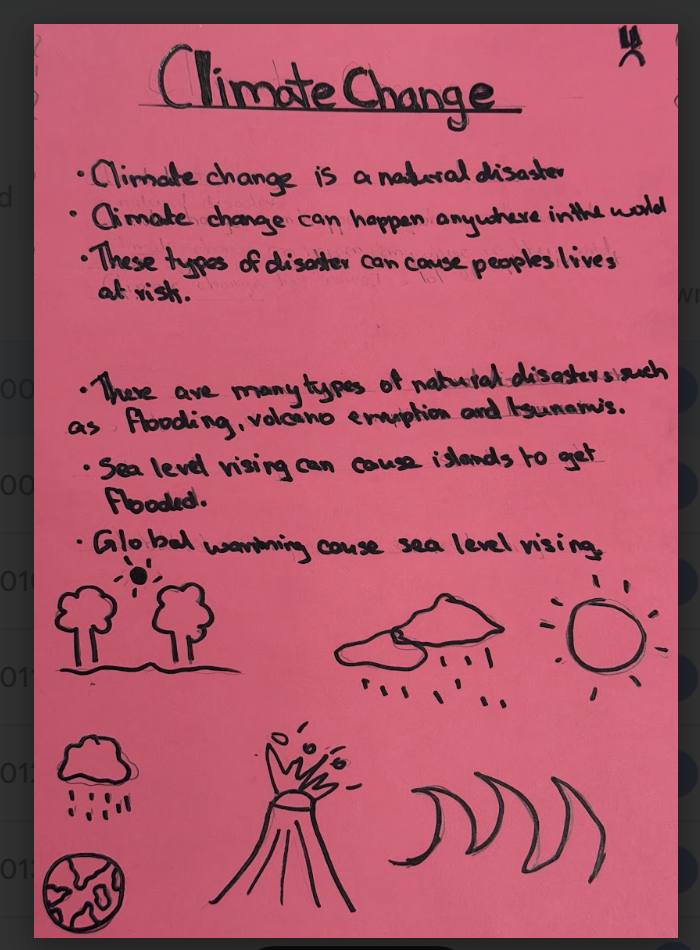 Climate Change
• Climate change is a natural disaster
• Climate change can happen anywhere in the world
• These types of disaster can cause peoples lives
at risk.
• There are many types of natural disasters such
as flooding, volcano erruption and tsunamis.
• Sea level rising can cause islands to get
flooded.
• Global warming cause sea level rising.